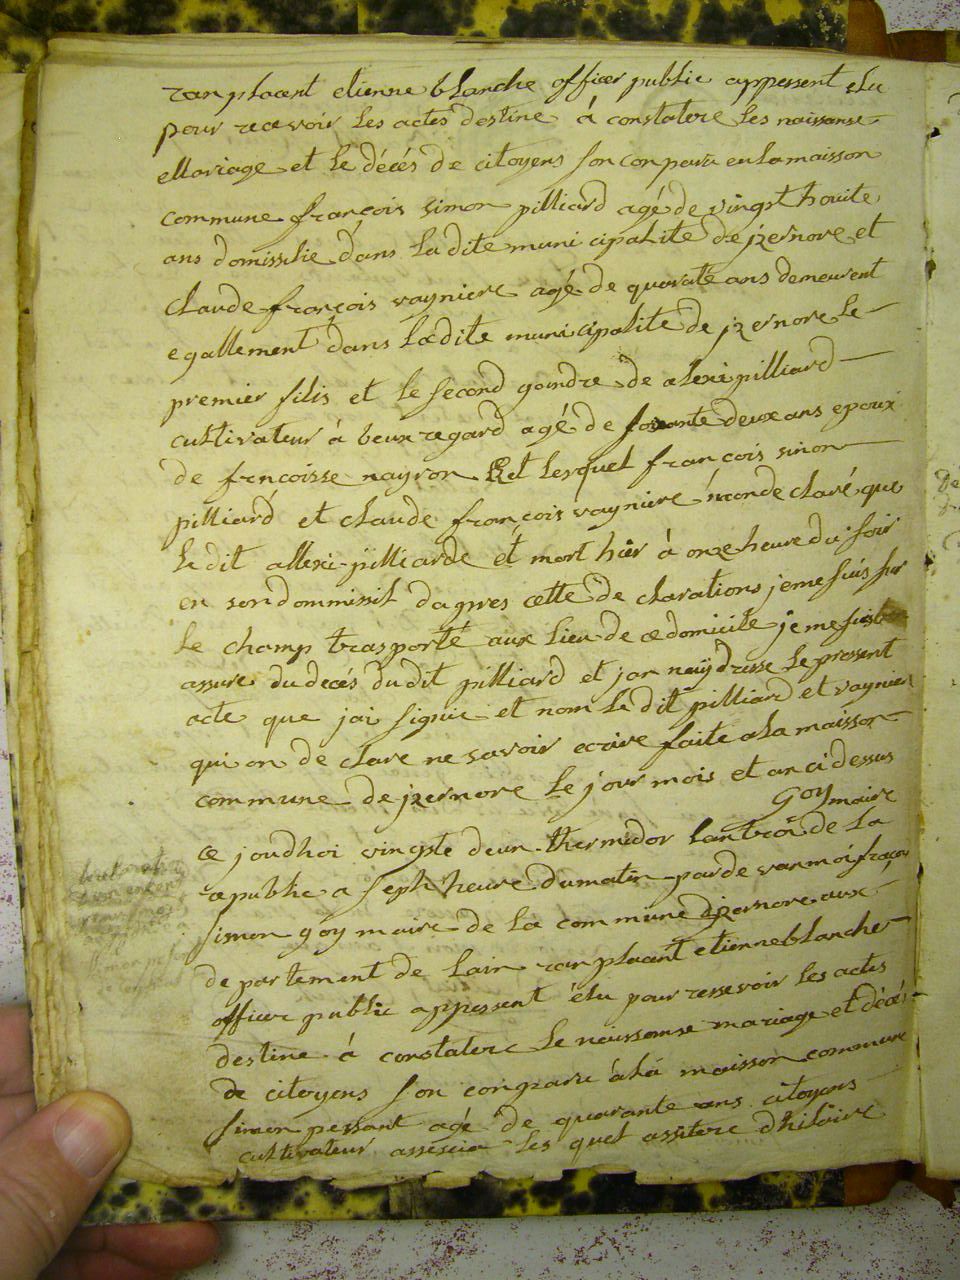 ranplacent etienne blanche officer public appessent elu
pour recevoir les actes destine à constatere les naissense
Mariage et le décés de citoyens son conparu en la maisson
commune françois simon pilliard agé de vingst houite
ans domissilie dans la dite municipalité de jzernore et
claude françois vayniere agé de quarate ans demeurent
egallement dans la dite municipalite de jzernore le
premier filis et le second gendre de alexi pilliard
cultivateur à beux regard agé de soxante deux ans epoux
de frncoisse nayron et lesquel francois simon
pilliard et claude françois vayniere mon de claré que
le dit allexi pilliarde et mort hier à onze heure du soir
en son dommissil dapres cette de clarations je me suis sur
le champ trasporté aux lieu de ce domicile je me suis
assure du decés du dit pilliard et jan naÿ dresse le pressent
acte que jai signie et nom le dit pilliard et vaynier
qui on de clare ne savoir ecrire faite a la maisson
commune de jzernore le jour mois et an ci dessus
Goy maire
ce joudhoi vingste deun thermidor lan troi de la
republic a seph heure du matin par de van moi françoi
simon goy maire de la commune djzernore aux
departement de lain ranplacent etienne blanche
officer public appessent élu pour ressevoir les actes
destine à constatere le naissense mariage et décés
de citoyens son conparu à la maisson commune
simon pessant agé de quarante ans citoyens
cultivateur les quel assistere dhilaire